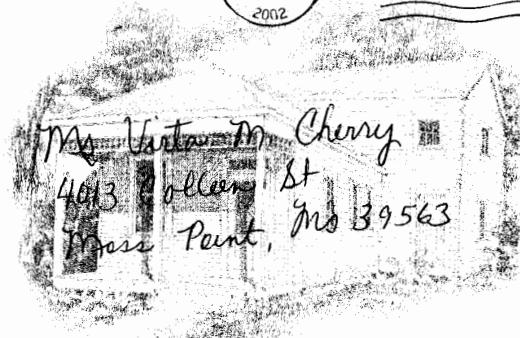 2002
Ms Virta M Cherry
4013 Colleen St
Moss Point, Ms 39563